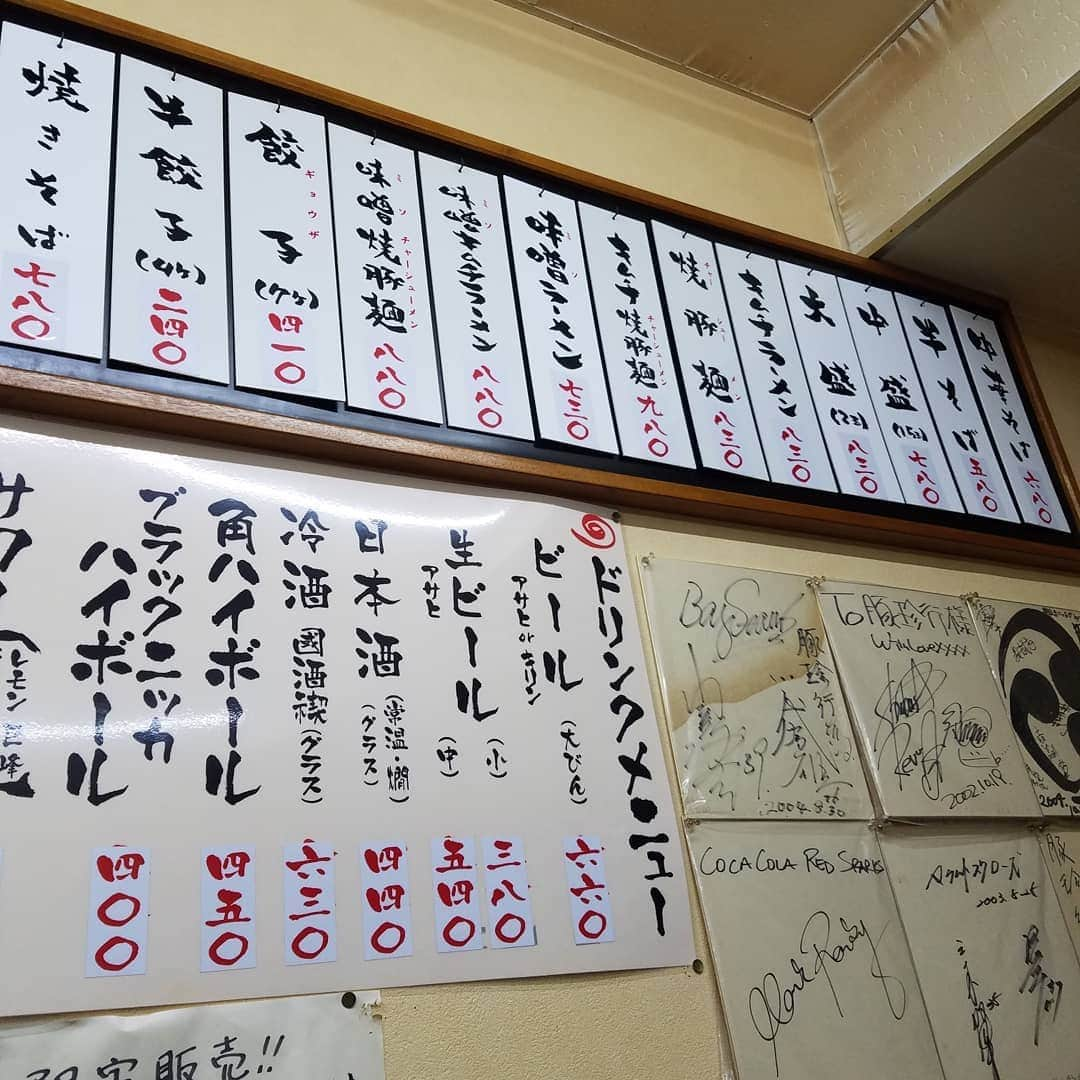 中華そば 六八〇
半そば 五八〇
中盛(1.5玉) 七八〇
大盛(2玉) 八三〇
キムチラーメン 八三〇
焼豚麺 八三〇
チャーシューメン
キムチ焼豚麺 九八〇
チャーシューメン
味噌ラーメン 七三〇
ミソ
味噌キムチラーメン 八八〇
ミソ
味噌焼豚麺 八八〇
ミソ チャーシューメン
餃子(7ヶ) 四一〇
ギョウザ
半餃子(4ヶ) 二四〇
焼きそば 七八〇
ドリンクメニュー
ビール (大びん) 六六〇
アサヒ or キリン
生ビール (小) 三八〇
アサヒ (中) 五四〇
日本酒 (常温・燗) (グラス) 四四〇
冷酒 國酒禊(グラス) 六三〇
角ハイボール 四五〇
ブラックニッカ
ハイボール 四〇〇
サワー (レモン
2004.8.30
To 豚珍行様
2002.10.19.
2004.10
COCA COLA RED SPARKS
2003.5.25
限定販売!!